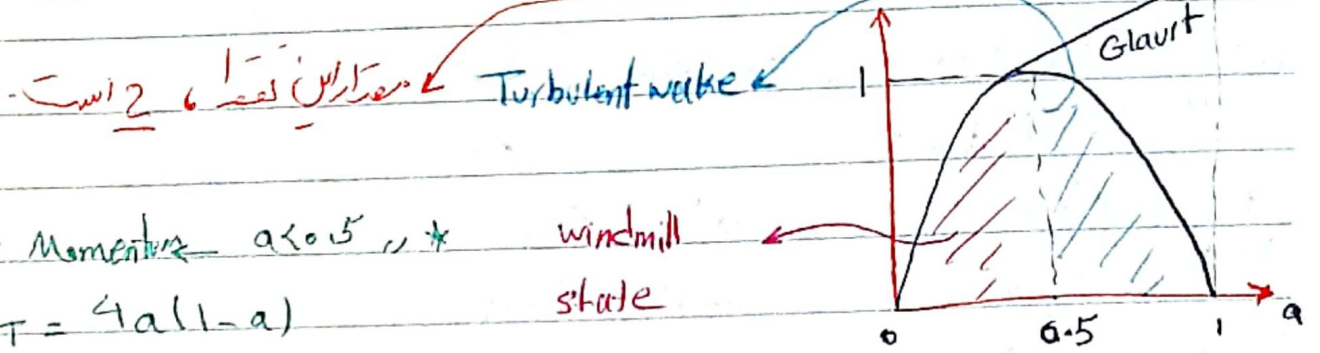 Glaurt
مقدار این نقطه، 2 است.
Turbulent wake
1
Momentum a<0.5 در *
windmill
state
T = 4a(1-a)
0 0.5 1 a